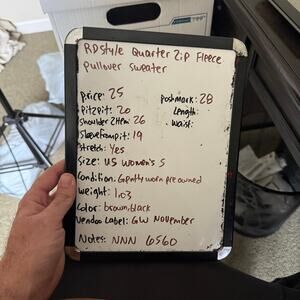 RDStyle Quarter Zip Fleece
Pullover Sweater
Price: 25
Pit2pit: 20
Shoulder2Hem: 26
Sleevefrompit: 19
Stretch: Yes
Size: US Women's S
Condition: Gently worn preowned
Weight: 1.03
Color: brown, black
Vendoo Label: GW November
Notes: NNN 6560
Poshmark: 28
Length:
Waist: